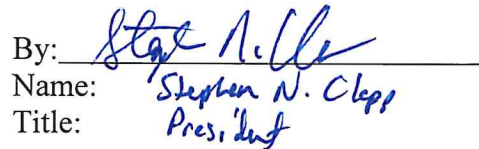 By:
Name: Stephen N. Clapp
Title: President